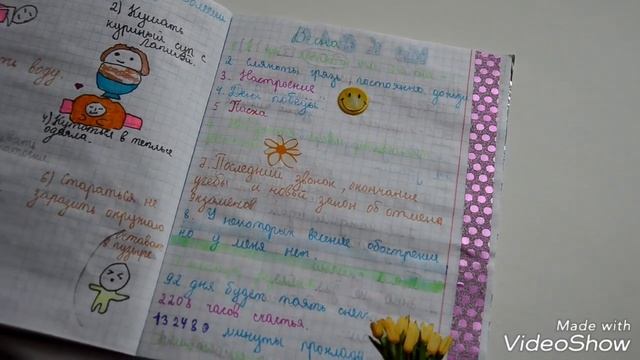 2) Кушать
куриный суп с
лапшой.
ть воду.
4) Кутаться в теплые
одеяла.
6) Стараться не
заразить окружаю
Оставать
в пузыре
Весна
2 слякоть грязь, постоянно дожди
3. Настроение
4. День победы
5 Пасха
7. Последний звонок, окончание
учебы и новый закон об отмена
экзаменов
8. У некоторых весение обострение,
но у меня нет.
92 дня будет таять снег.
2208 часов счастья.
132480 минуты прохлады
Made with
VideoShow